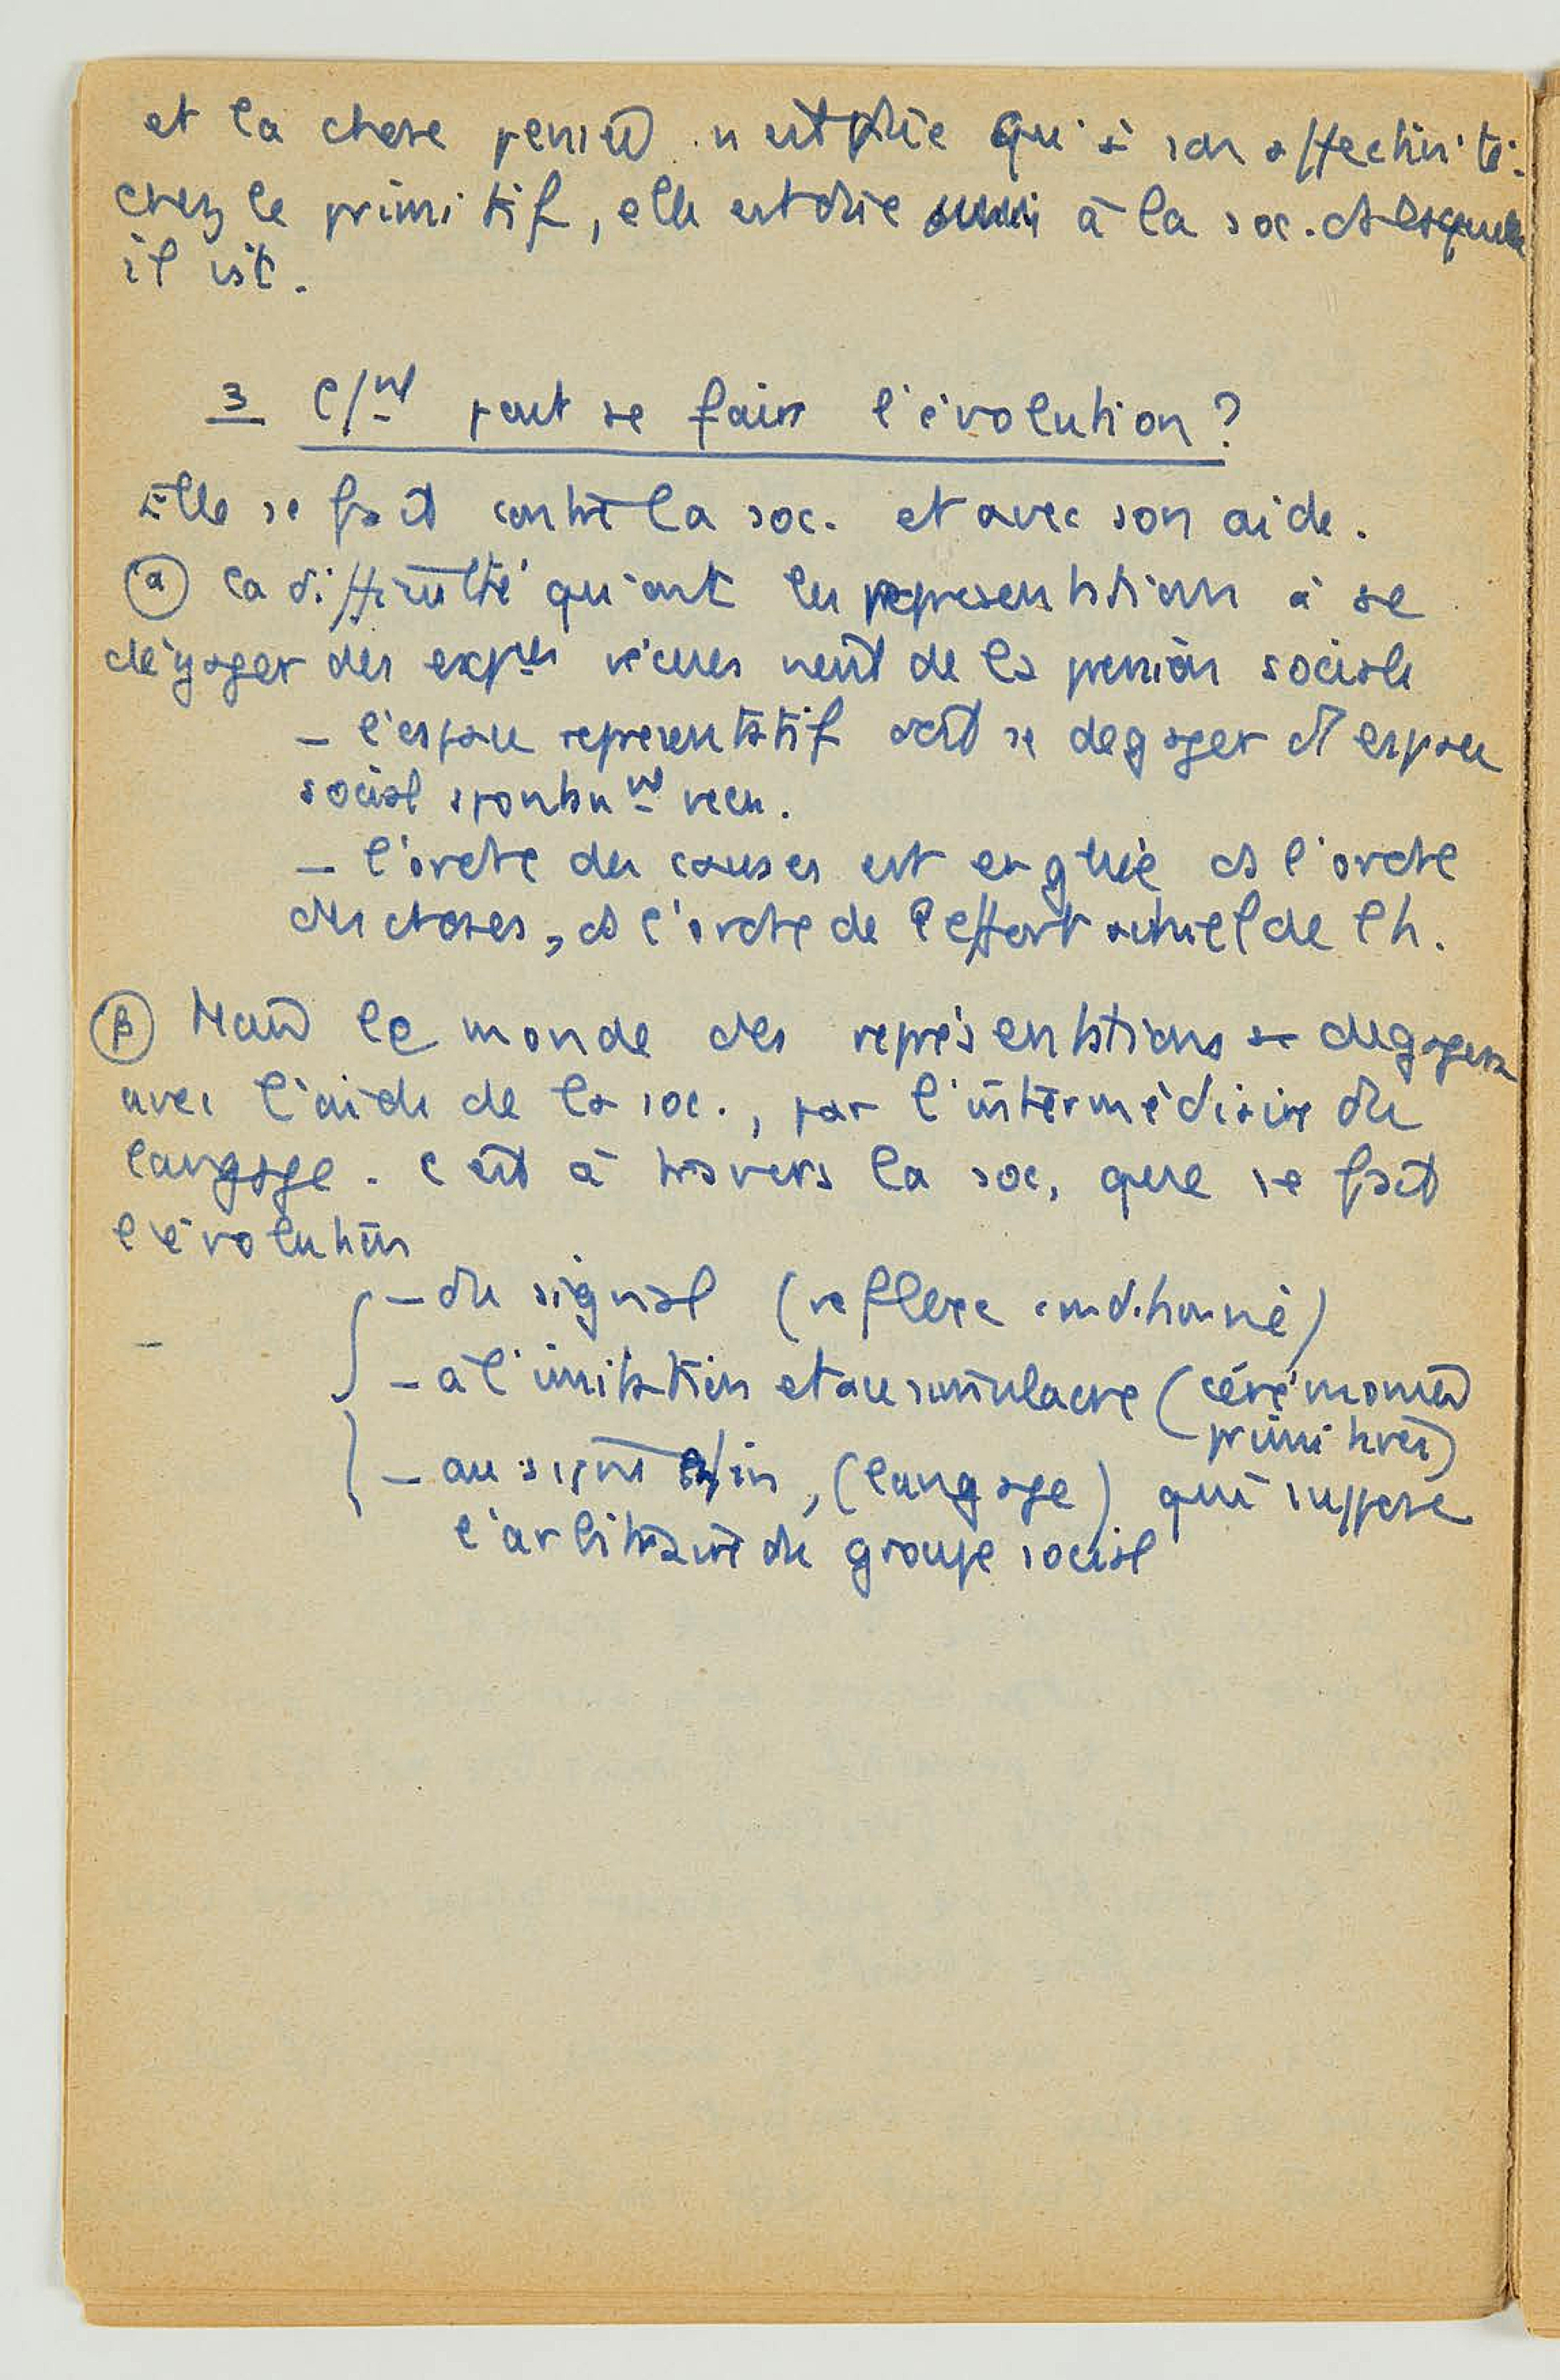 et la chose pensée n'est due qu'à son affectivité.
chez le primitif, elle est due aussi à la soc. ds laquelle
il vit.
3 C/nt peut se faire l'évolution ?
Elle se fait contre la soc. et avec son aide.
(α) la difficulté qu'ont les représentations à se
dégager des exp^ces vécues vient de la pression sociale
– l'espace représentatif doit se dégager d l'espace
social spontan^nt vécu.
– l'ordre des causes est englué ds l'ordre
des choses, ds l'ordre de l'effort actuel de l'h.
(β) Mais le monde des représentations se dégagera
avec l'aide de la soc., par l'intermédiaire du
langage. C'est à travers la soc. que se fait
l'évolution
– du signal (réflexe conditionné)
– à l'imitation et au simulacre (cérémonies
primitives)
– au signe enfin, (langage) qui suppose
l'arbitraire du groupe social